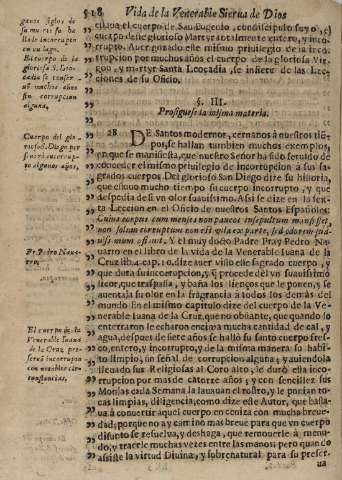 518 Vida de la Venerable Sierua de Dios
ganos siglos de
su muerte fa ha
llado incorrupto
en su lugar.
El cuerpo de la
gloriosa S. Leocadia
se conseruò
muchos años
sin corrupcion
alguna.
cipio a el cuerpo de San Eugenio, condiscipulo suyo, el
cuerpo deste glorioso Martyr totalmente entero, y incorrupto.
Auer gozado este mismo priuilegio de la incorrupcion
por muchos años el cuerpo de la gloriosa Virgen,
y martyr Santa Leocadia, se infiere de las Lecciones
de su Oficio.
§. III.
Prosiguese la misma materia.
Cuerpo del glorioso
S. Diego por
incorrupto
algunos años.
28 DE Santos modernos, cercanos à nuestros tiempos,
se hallan tambien muchos exemplos,
en que se manifiesta, que nuestro Señor ha sido seruido de
conceder el mismo priuilegio de incorrupcion à sus sagrados
cuerpos. Del glorioso San Diego dize su historia,
que estuuo mucho tiempo su cuerpo incorrupto, y que
despedia de si vn olor suauissimo. Assi se dize en la sexta
Leccion en el Oficio de nuestros Santos Españoles:
Cuius corpus cum menses non paucos insepultum mansisset,
non solum corruptum non est vlla ex parte, sed odorem suauissimum
Fr. Pedro Nauarro.
Y el muy docto Padre Fray Pedro Nauarro
en el libro de la vida de la Venerable Iuana de la
Cruz dize auer visto este sagrado cuerpo, y
que dura su incorrupcion, y q̃ procede dèl vn suauissimo
licor, que traspassa, y baña los lienços que le ponen, y se
auentaja su olor en la fragrancia à todos los demás del
mundo. En el mismo capitulo dize del cuerpo de la Venerable
Iuana de la Cruz, que no obstante, que quando lo
enterraron le echaron encima mucha cantidad de cal, y
El cuerpo de la
Venerable Iuana
de la Cruz preseruado
incorrupto
con notables circunstancias.
agua, despues de siete años se hallò su santo cuerpo fresco,
entero, y incorrupto; y de la misma manera su habito
limpio, sin señal de corrupcion alguna; y auiendola
lleuado sus Religiosas al Coro alto, le durò esta incorrupcion
por mas de catorze años; y con senzillez sus
Monjas cada Semana la lauauan el rostro, y le ponian tocas
limpias, diligencia, como dize este Autor, que bastaua
à conuertir aquel cuerpo en ceniza con mucha breuedad;
porque no ay camino mas breue para que vn cuerpo
difunto se resuelua, y deshaga, que remouerle à menudo,
y traerle muchas vezes entre las manos; pero quando
assiste la virtud Diuina, y sobrenatural para su preser-
ua